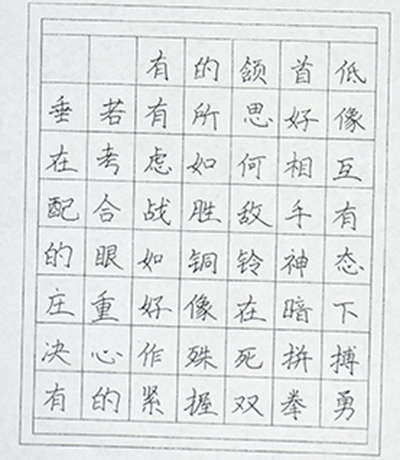 有的颌首低
垂若有所思好像
在考虑如何相互
配合战胜敌手有
的眼如铜铃神态
庄重好像在暗下
决心作殊死拚搏
有的紧握双拳勇